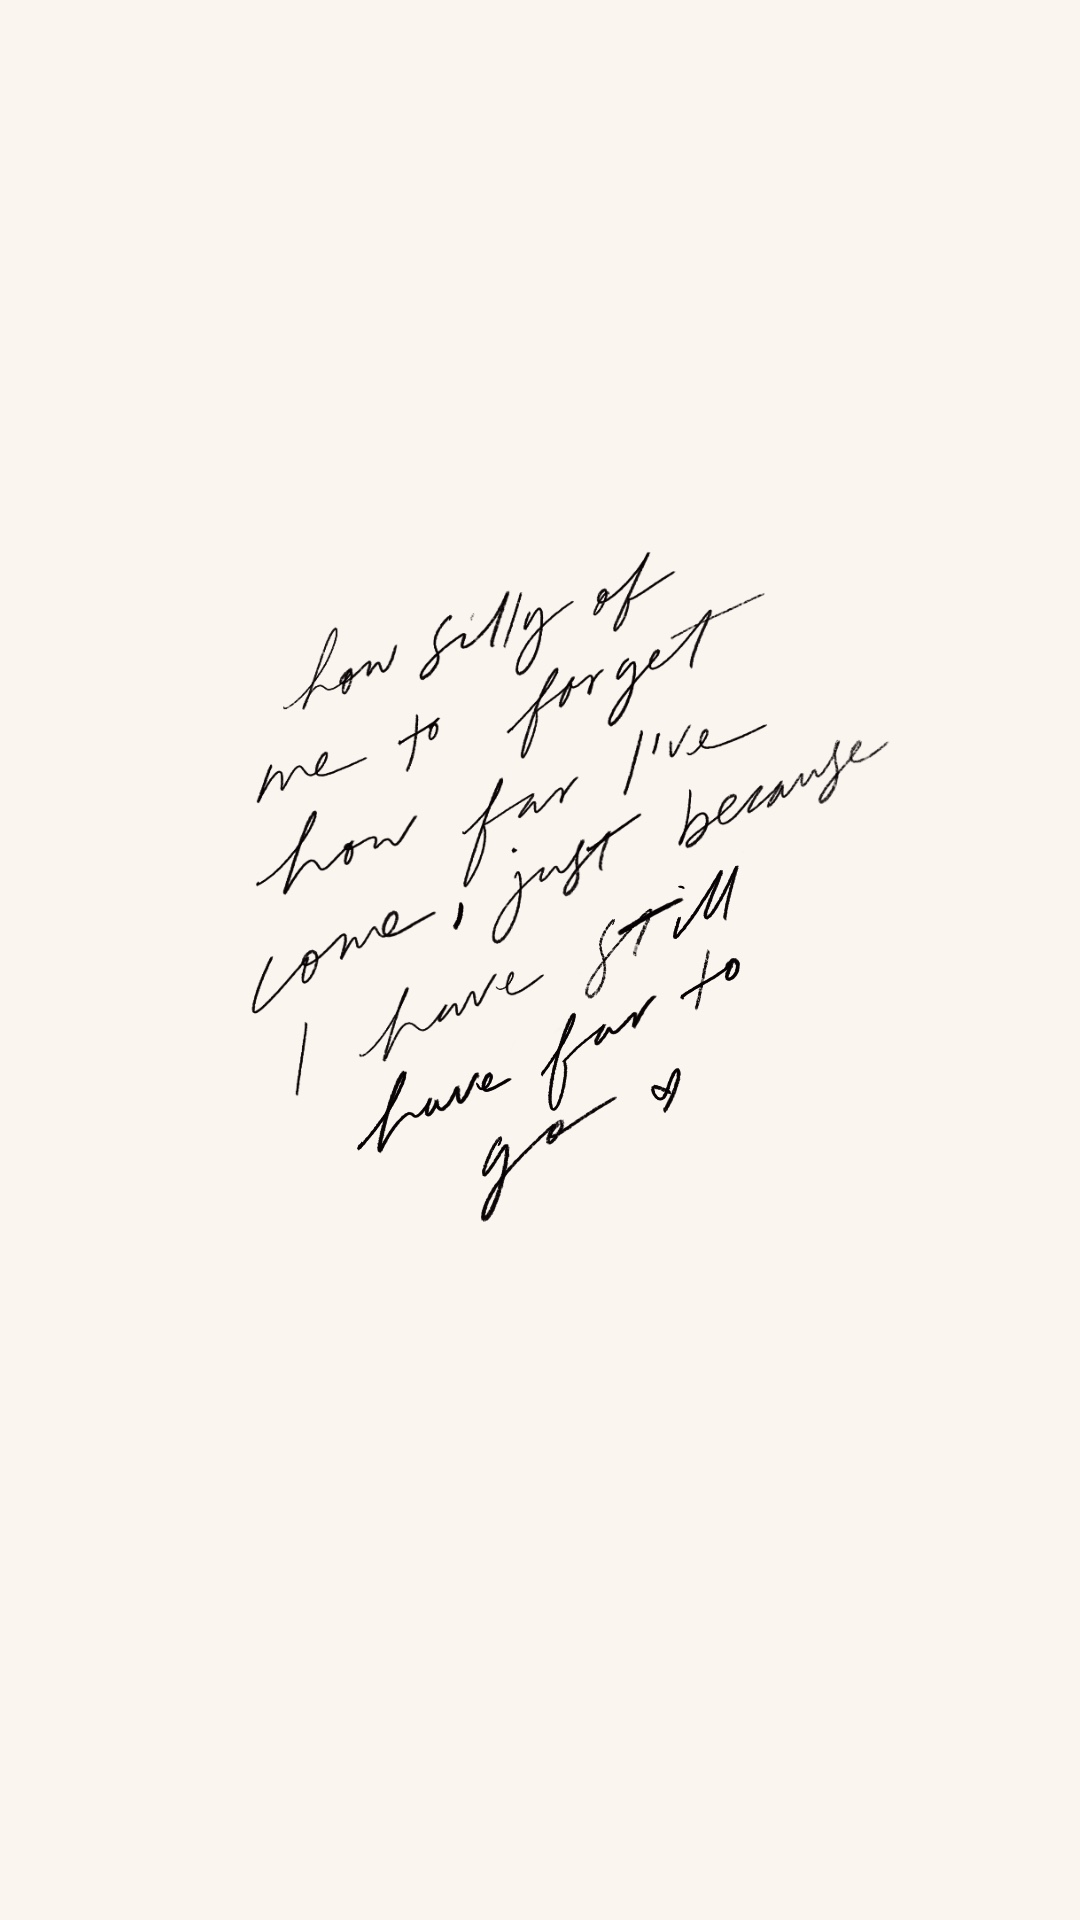 how silly of
me to forget
how far I've
come, just because
I have still
have far to
go